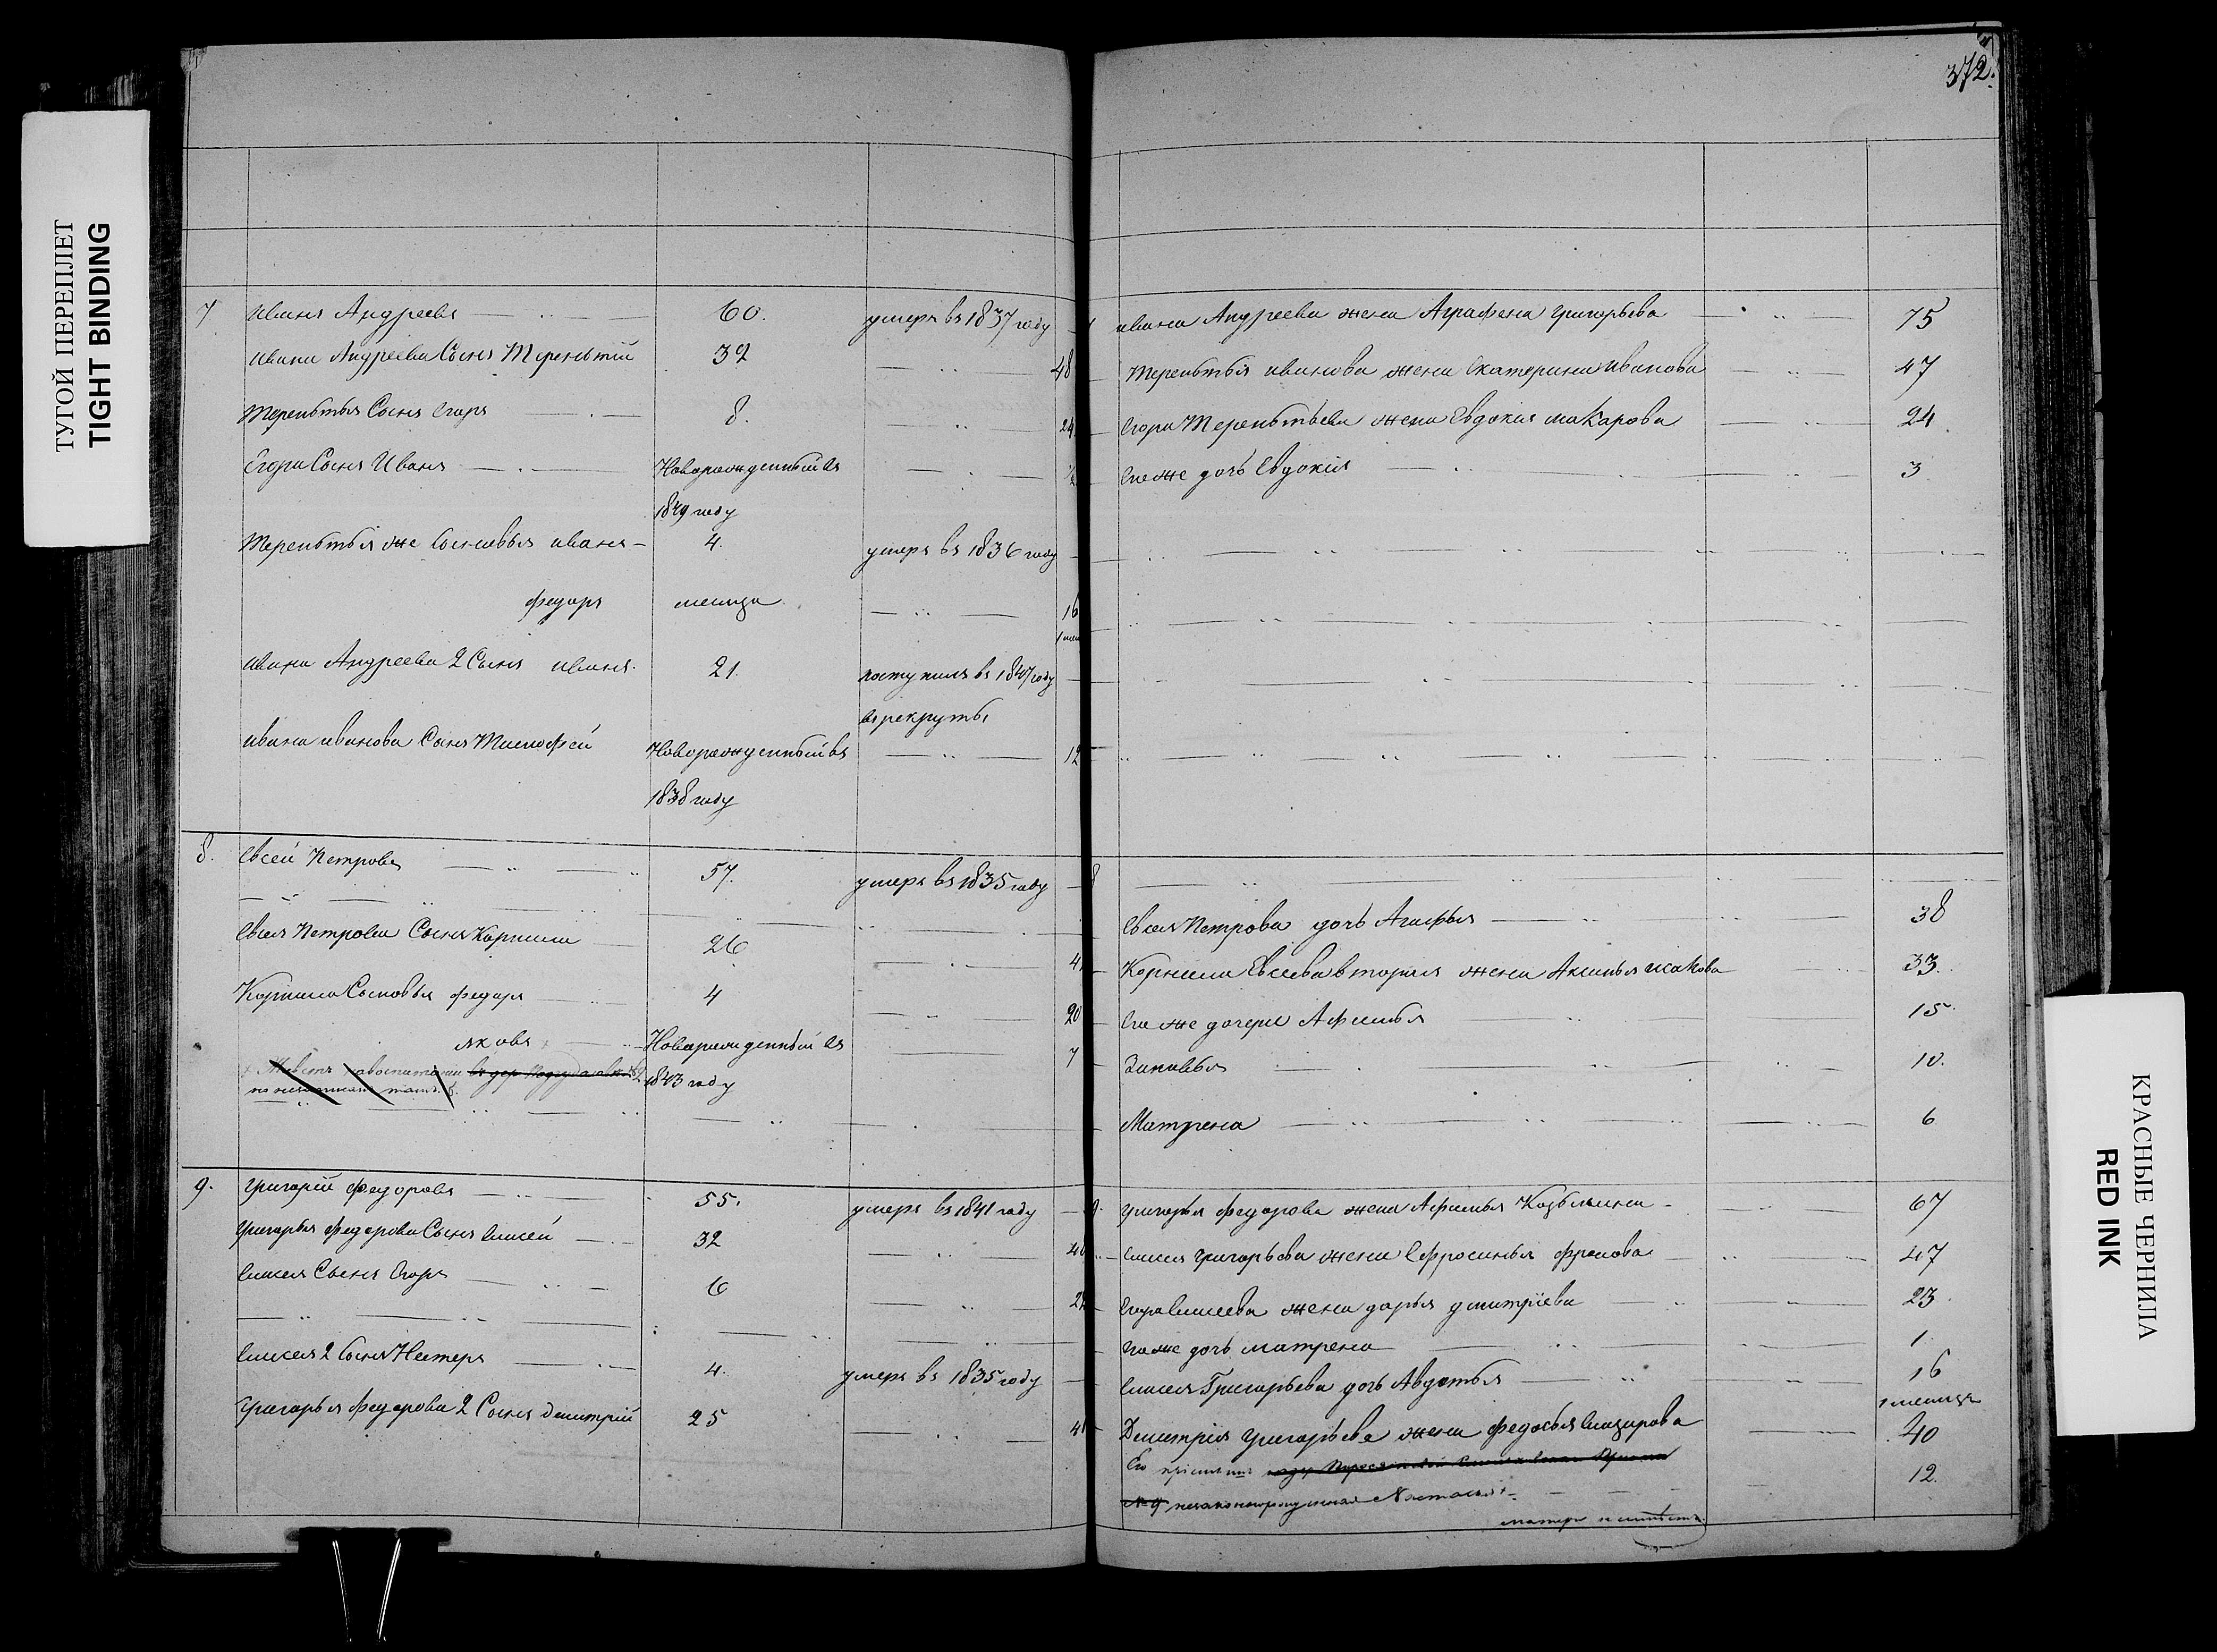 372.
ТУГОЙ ПЕРЕПЛЕТ
TIGHT BINDING
7 Иванъ Андреевъ 60. умеръ въ 1837 году
Ивана Андреева Сынъ Терентiй 32 48
Терентья Сынъ Егоръ 8. 24
Егора Сынъ Иванъ Новорожденный въ
1849 году
Терентья же Сыновья иванъ 4. умеръ въ 1836 году
федоръ месяца 16
Ивана Андреева 2 Сынъ иванъ 21. поступилъ въ 1847 году
въ рекруты
ивана иванова Сынъ Тимофей Новорожденный въ 12
1838 году
8. Евсей Петровъ 57. умеръ въ 1835 году
Евсея Петрова Сынъ Корнила 26
Корнила Сыновья федоръ 4 20
яковъ Новорожденный въ 7
1843 году
9. Григорiй федоровъ 55. умеръ въ 1841 году
Григорья федорова Сынъ Елисей 32
Елисея Сынъ Егоръ 6
Елисея 2 Сынъ Нестеръ 4. умеръ въ 1835 году
Григорья федорова 2 Сынъ дмитрiй 25
ивана Андреева жена Аграфена григорьева 75
Терентья иванова жена Екатерина иванова 47
Егора Терентьева жена Евдокия макарова 24
Ево же дочь Евдокiя 3
8
Евсея Петрова дочь Агафья 38
Корнила Евсеева вторая жена Аксинья 33.
Ево же дочери Афимья 15
Зиновья 10.
Матрена 6
9. григорья федорова жена Афимья Козьмина 67
Елисея григорьева жена Ефросинья фролова 47
Егора Елисеева жена дарья дмитрiева 23
Ево же дочь матрена 1
Елисея Григорьева дочь Авдотья 16
1 месяцъ
Дмитрiя григорьева жена федосья 40
Ево 12.
незаконнорожденная
КРАСНЫЕ ЧЕРНИЛА
RED INK